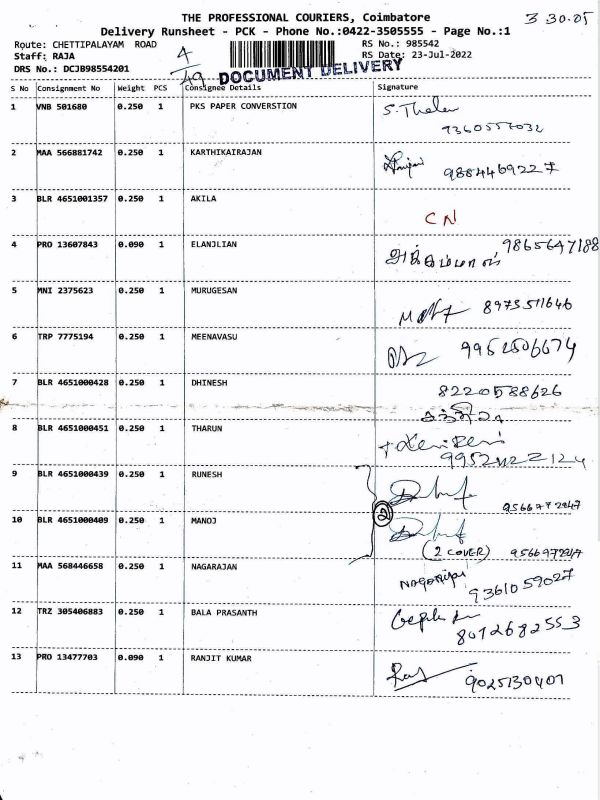 THE PROFESSIONAL COURIERS, Coimbatore
3 30.05
Delivery Runsheet - PCK - Phone No.:0422-3505555 - Page No.:1
Route: CHETTIPALAYAM ROAD
RS No.: 985542
Staff: RAJA
4
RS Date: 23-Jul-2022
DRS No.: DCJB98554201
49
DOCUMENT DELIVERY
S No Consignment No Weight PCS Consignee Details Signature
1 VNB 501680 0.250 1 PKS PAPER CONVERSTION
9360557032
2 MAA 566881742 0.250 1 KARTHIKAIRAJAN
9884469227
3 BLR 4651001357 0.250 1 AKILA
CN
4 PRO 13607843 0.090 1 ELANJLIAN 9865647188
5 MNI 2375623 0.250 1 MURUGESAN
8973511646
6 TRP 7775194 0.250 1 MEENAVASU
9952506674
7 BLR 4651000428 0.250 1 DHINESH
8220588626
8 BLR 4651000451 0.250 1 THARUN
9 BLR 4651000439 0.250 1 RUNESH
2
10 BLR 4651000409 0.250 1 MANOJ
(2 COVER)
11 MAA 568446658 0.250 1 NAGARAJAN
9361059027
12 TRZ 305406883 0.250 1 BALA PRASANTH
8012682553
13 PRO 13477703 0.090 1 RANJIT KUMAR
9025130401